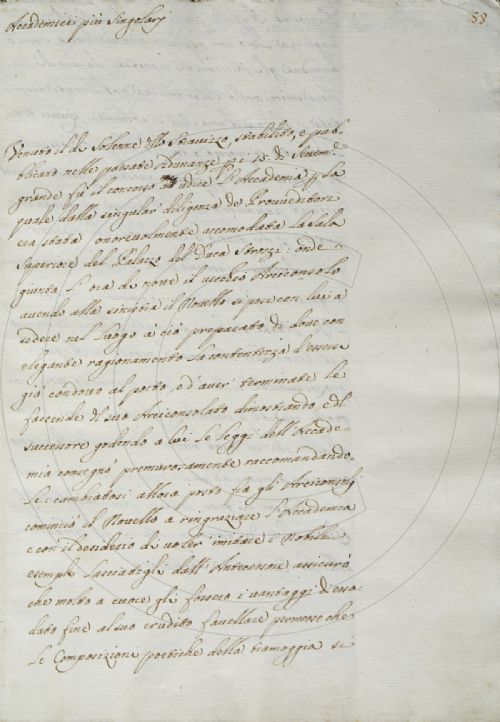 Accademici più Singolarj
53
Venuto il dì Solenne dello Stravizzo, stabilito, e pub-
blicato nelle passate adunanze p i 15. di Settem.e
grande fù il concorso ad udire l'Accademia p la
quale dalla singular diligenza de Provveditori
era stata onorevolmente accomodata la Sala
Superiore del Palazzo del Duca Strozzi: onde
giunta l'ora di nove il vecchio Arciconsolo
avendo alla sinistra il Novello si pose con lui a
sedere nel luogo a ciò preparato, di dove con
elegante ragionamento la contentezza d'essere
già condotto al porto, e d'aver terminate le
faccende del suo Arciconsolato dimostrando, e del
successore godendo a lui le leggi dell'Accade-
mia consegnò premurosamente raccomandando-
le: cambiatosi allora posto fra gli Arciconsoli
cominciò il Novello a ringraziare l'Accademia
e con il desiderio di voler imitare i Nobili
esempli lasciatigli dall'Antecessore assicurò
che molto a cuore gli fossero i vantaggi di essa:
dato fine al suo erudito favellare permesse che
le Composizioni poetiche della tramoggia si